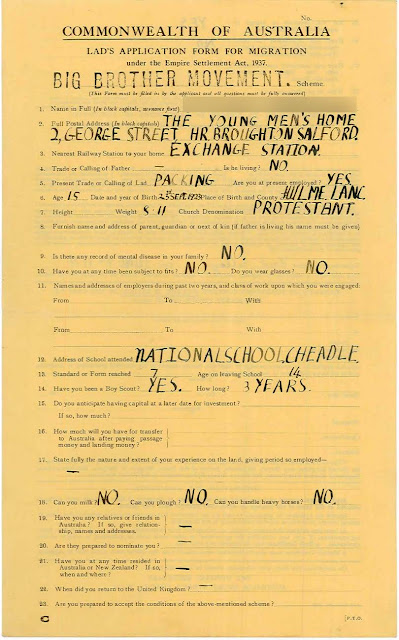 No.
COMMONWEALTH OF AUSTRALIA
LAD'S APPLICATION FORM FOR MIGRATION
under the Empire Settlement Act, 1937.
BIG BROTHER MOVEMENT. Scheme.
(This Form must be filled in by the applicant and all questions must be fully answered)
1. Name in Full (In block capitals, surname first)
2. Full Postal Address (In block capitals) THE YOUNG MEN'S HOME
2, GEORGE STREET, HR. BROUGHTON SALFORD.
3. Nearest Railway Station to your home EXCHANGE STATION.
4. Trade or Calling of Father — Is he living? NO.
5. Present Trade or Calling of Lad PACKING Are you at present employed? YES
6. Age 15 Date and year of Birth SEPT. 1923 Place of Birth and County HULME LANC.
7. Height Weight 8-11 Church Denomination PROTESTANT.
8. Furnish name and address of parent, guardian or next of kin (if father is living his name must be given)
9. Is there any record of mental disease in your family? NO.
10. Have you at any time been subject to fits? NO. Do you wear glasses? NO.
11. Names and addresses of employers during past two years, and class of work upon which you were engaged:
From To With
From To With
12. Address of School attended NATIONAL SCHOOL, CHEADLE.
13. Standard or Form reached 7 Age on leaving School 14.
14. Have you been a Boy Scout? YES. How long? 3 YEARS.
15. Do you anticipate having capital at a later date for investment?
If so, how much?
16. How much will you have for transfer
to Australia after paying passage
money and landing money?
17. State fully the nature and extent of your experience on the land, giving period so employed—
—
18. Can you milk? NO. Can you plough? NO. Can you handle heavy horses? NO.
19. Have you any relatives or friends in
Australia? If so, give relation-
ship, names and addresses. —
20. Are they prepared to nominate you? —
21. Have you at any time resided in
Australia or New Zealand? If so,
when and where? —
22. When did you return to the United Kingdom? —
23. Are you prepared to accept the conditions of the above-mentioned scheme?
[P.T.O.